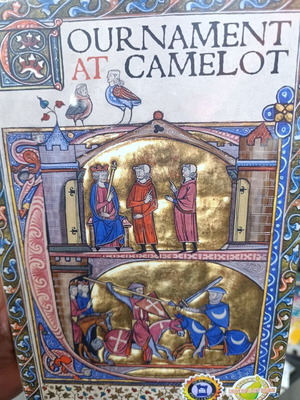 TOURNAMENT
AT CAMELOT